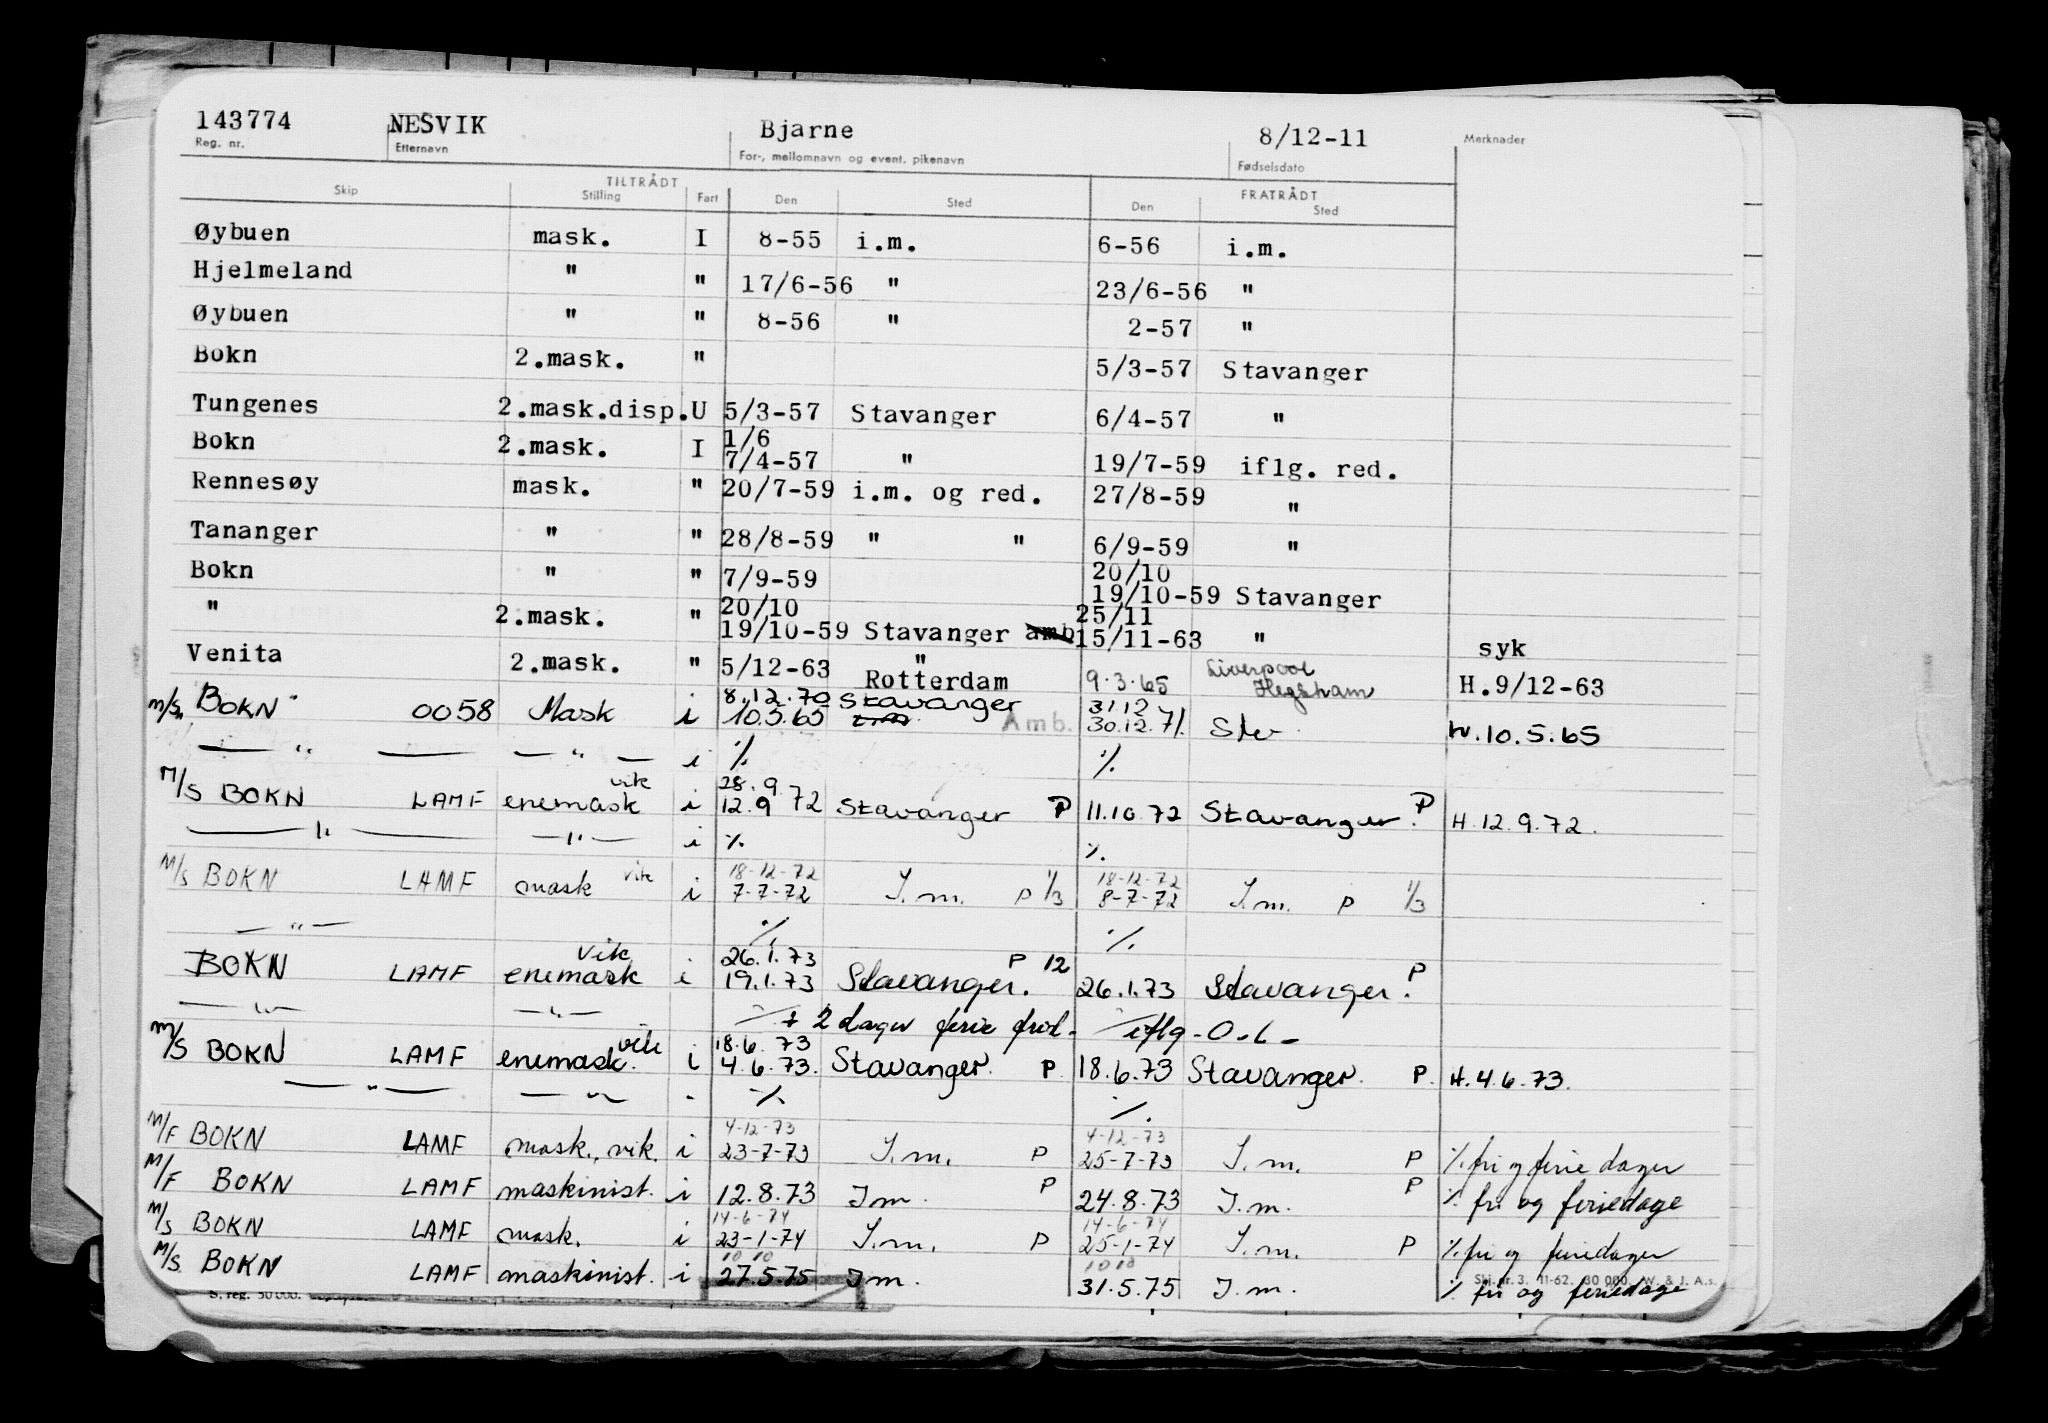 143774 NESVIK Bjarne 8/12-11 Merknader
Reg. nr. Etternavn For-, mellomnavn og event. pikenavn Fødselsdato
TILTRÅDT FRATRÅDT
Skip Stilling Fart Den Sted Den Sted
Øybuen mask. I 8-55 i.m. 6-56 i.m.
Hjelmeland " " 17/6-56 " 23/6-56 "
Øybuen " " 8-56 " 2-57 "
Bokn 2.mask. " 5/3-57 Stavanger
Tungenes 2.mask.disp. U 5/3-57 Stavanger 6/4-57 "
1/6
Bokn 2.mask. I 7/4-57 " 19/7-59 iflg. red.
Rennesøy mask. " 20/7-59 i.m. og red. 27/8-59 "
Tananger " " 28/8-59 " " 6/9-59 "
20/10
Bokn " " 7/9-59 19/10-59 Stavanger
20/10 25/11
" 2.mask. " 19/10-59 Stavanger amb 15/11-63 " syk
"
Venita 2.mask. " 5/12-63 Rotterdam 9.3.65 Liverpool H.9/12-63
8.12.70 Stavanger 31.12
m/s BOKN 0058 Mask i 10.5.65 Amb. 30.12.71. Stv W.10.5.65
— " — — " — i % %
vik 28.9.
M/S BOKN LAMF enemask i 12.9 72 Stavanger P 11.10.72 Stavanger. P H.12.9.72.
— " — — " — i % %
vik 18-12-72 18-12-72
M/S BOKN LAMF mask i 7-7-72 I.m. P 1/3 8-7-72 I.m. P 1/3
— " — % %
vik 26.1.73 P 12 P
BOKN LAMF enemask i 19.1.73 Stavanger. 26.1.73 Stavanger.
— " — — " — % + 2 dager ferie % iflg - O.L -
vik 18.6.73
M/S BOKN LAMF enemask. i 4.6.73. Stavanger. P. 18.6.73 Stavanger. P. H.4.6.73.
— " — — " — - % %
4-12-73 4-12-73
M/F BOKN LAMF mask., vik. i 23-7-73 I.m. P 25-7-73 I.m. P % fri og ferie dager
M/F BOKN LAMF maskinist. i 12.8.73 Im. P 24.8.73 I.m. P % fri og feriedage
14-6-74 14-6-74
M/S BOKN LAMF mask. i 23-1-74 I.m. P 25-1-74 I.m. P % fri og feriedager
10 10 10 10
M/S BOKN LAMF maskinist. i 27.5.75 Im. 31.5.75 I.m. % fri og feriedage
Skj. nr. 3. 11-62. 30 000. W. & J. A.s.
S. reg. 50 000.